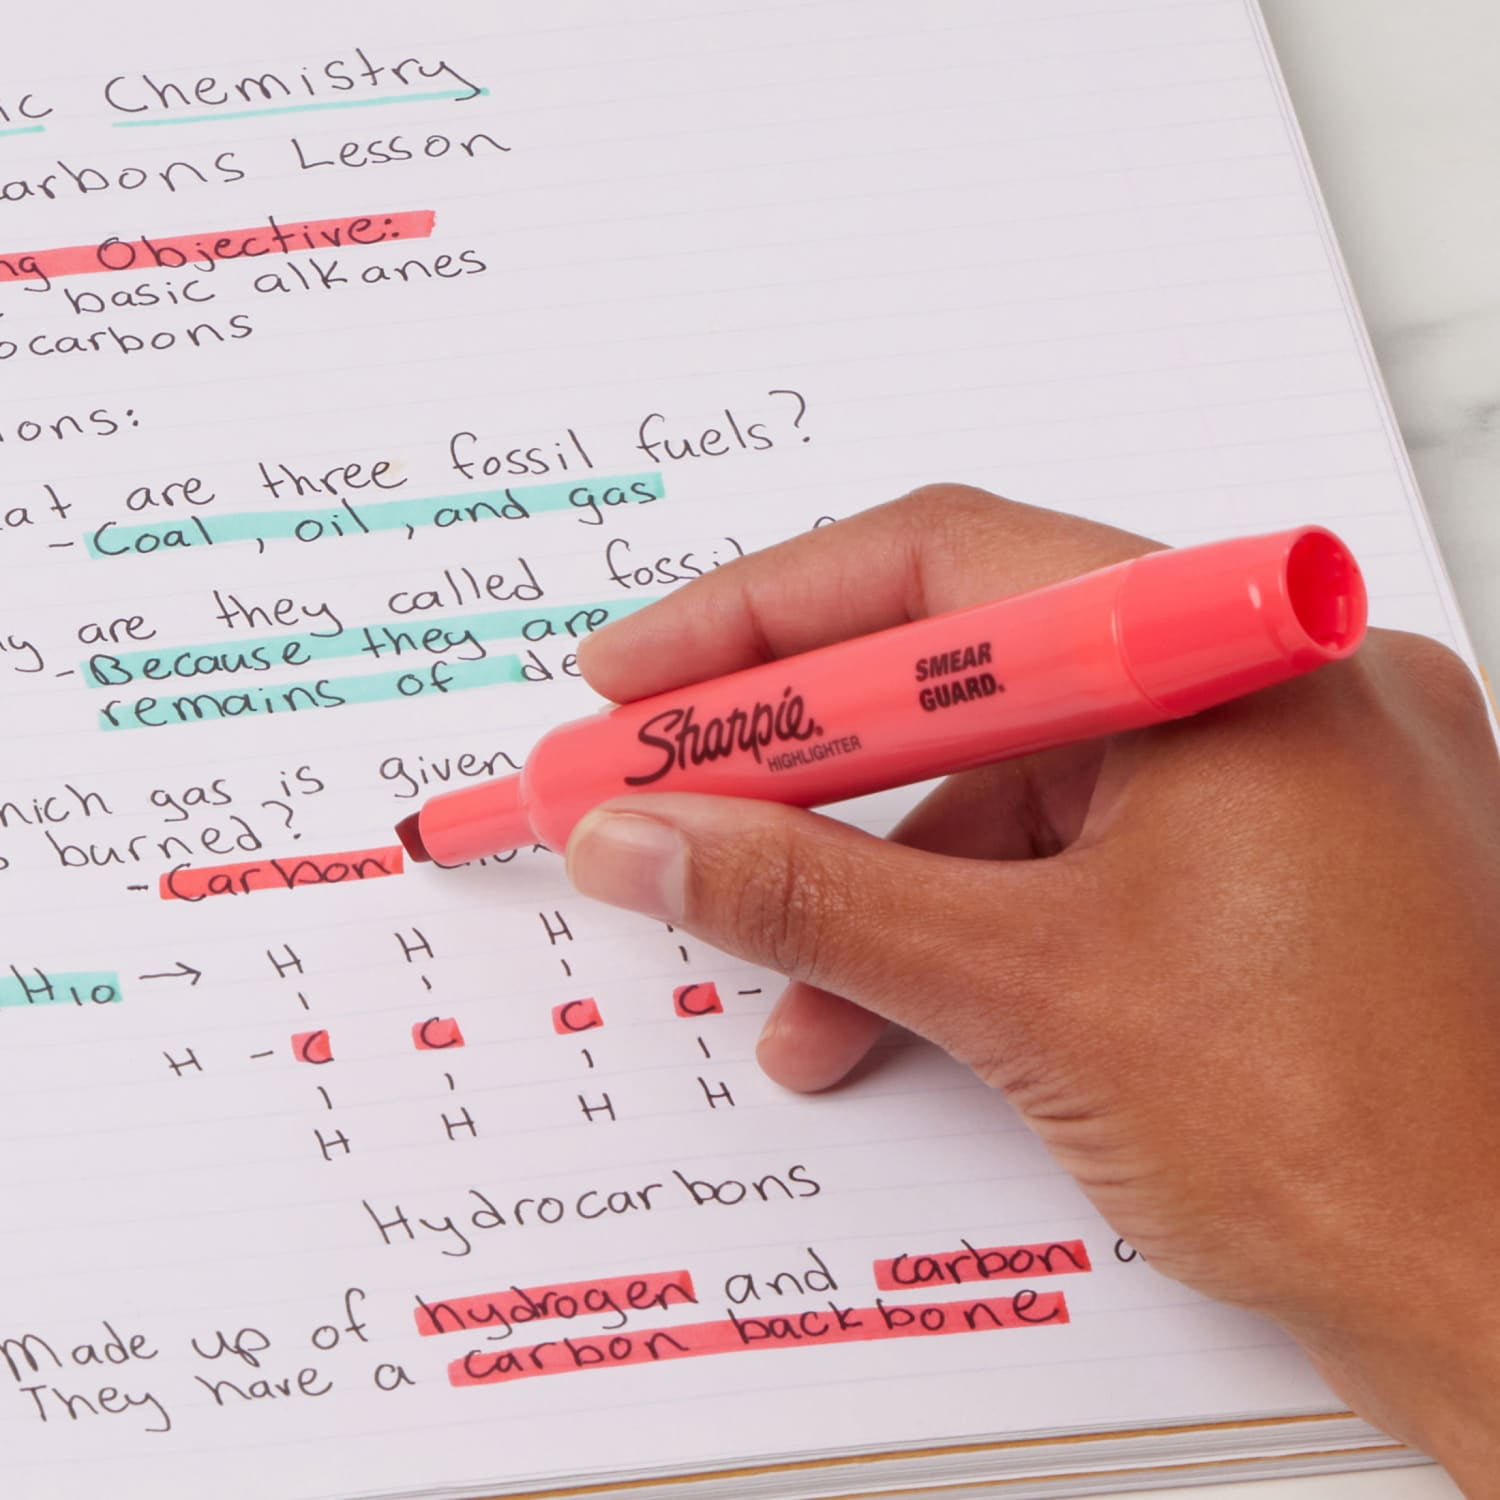 ic Chemistry
arbons Lesson
ng Objective:
basic alkanes
ocarbons
ions:
at are three fossil fuels?
- Coal, oil, and gas
y are they called fossil
- Because they are
remains of de
hich gas is given
burned?
- Carbon
H10 → H H H
H - C C C C -
H H H H
Hydrocarbons
Made up of hydrogen and carbon a
They have a carbon backbone
Sharpie®
HIGHLIGHTER
SMEAR
GUARD®